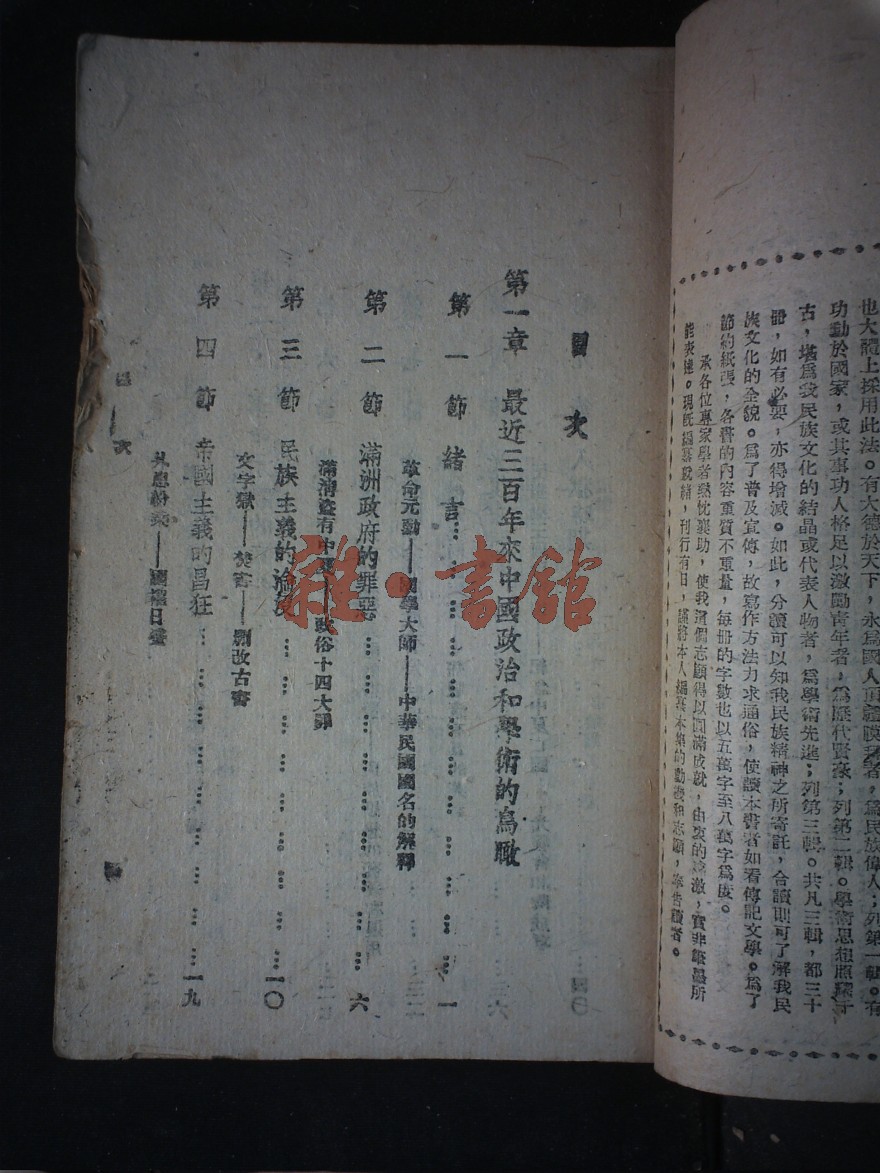 也大體上採用此法。有大德於天下，永爲國人頂禮膜拜者，爲民族偉人；列第一輯。有
功勳於國家，或其事功人格足以激勵青年者，爲歷代賢豪；列第二輯。學術思想照耀千
古，堪爲我民族文化的結晶或代表人物者，爲學術先進；列第三輯。共凡三輯，都三十
册，如有必要，亦得增減。如此，分讀可以知我民族精神之所寄託，合讀則可了解我民
族文化的全貌。爲了普及宣傳，故寫作方法力求通俗，使讀本書者如看傳記文學。爲了
節約紙張，各書的內容重質不重量，每冊的字數也以五萬字至八萬字爲度。
承各位專家學者熱忱襄助，使我這個志願得以圓滿成就，由衷的感激，實非縑墨所
能表達。現旣編纂就緒，刊行有日，謹將本人編纂本集的動機和志願，奉告讀者。
目次
第一章 最近三百年來中國政治和學術的鳥瞰
第一節 緒言……一
革命元勳——國學大師——中華民國國名的解釋
第二節 滿洲政府的罪惡……六
滿清盜有中國政俗十四大罪
第三節 民族主義的……一〇
文字獄——焚書——刪改古書
第四節 帝國主義的昌狂……一九
外患紛乘——國權日蹙
目次
雜·書館